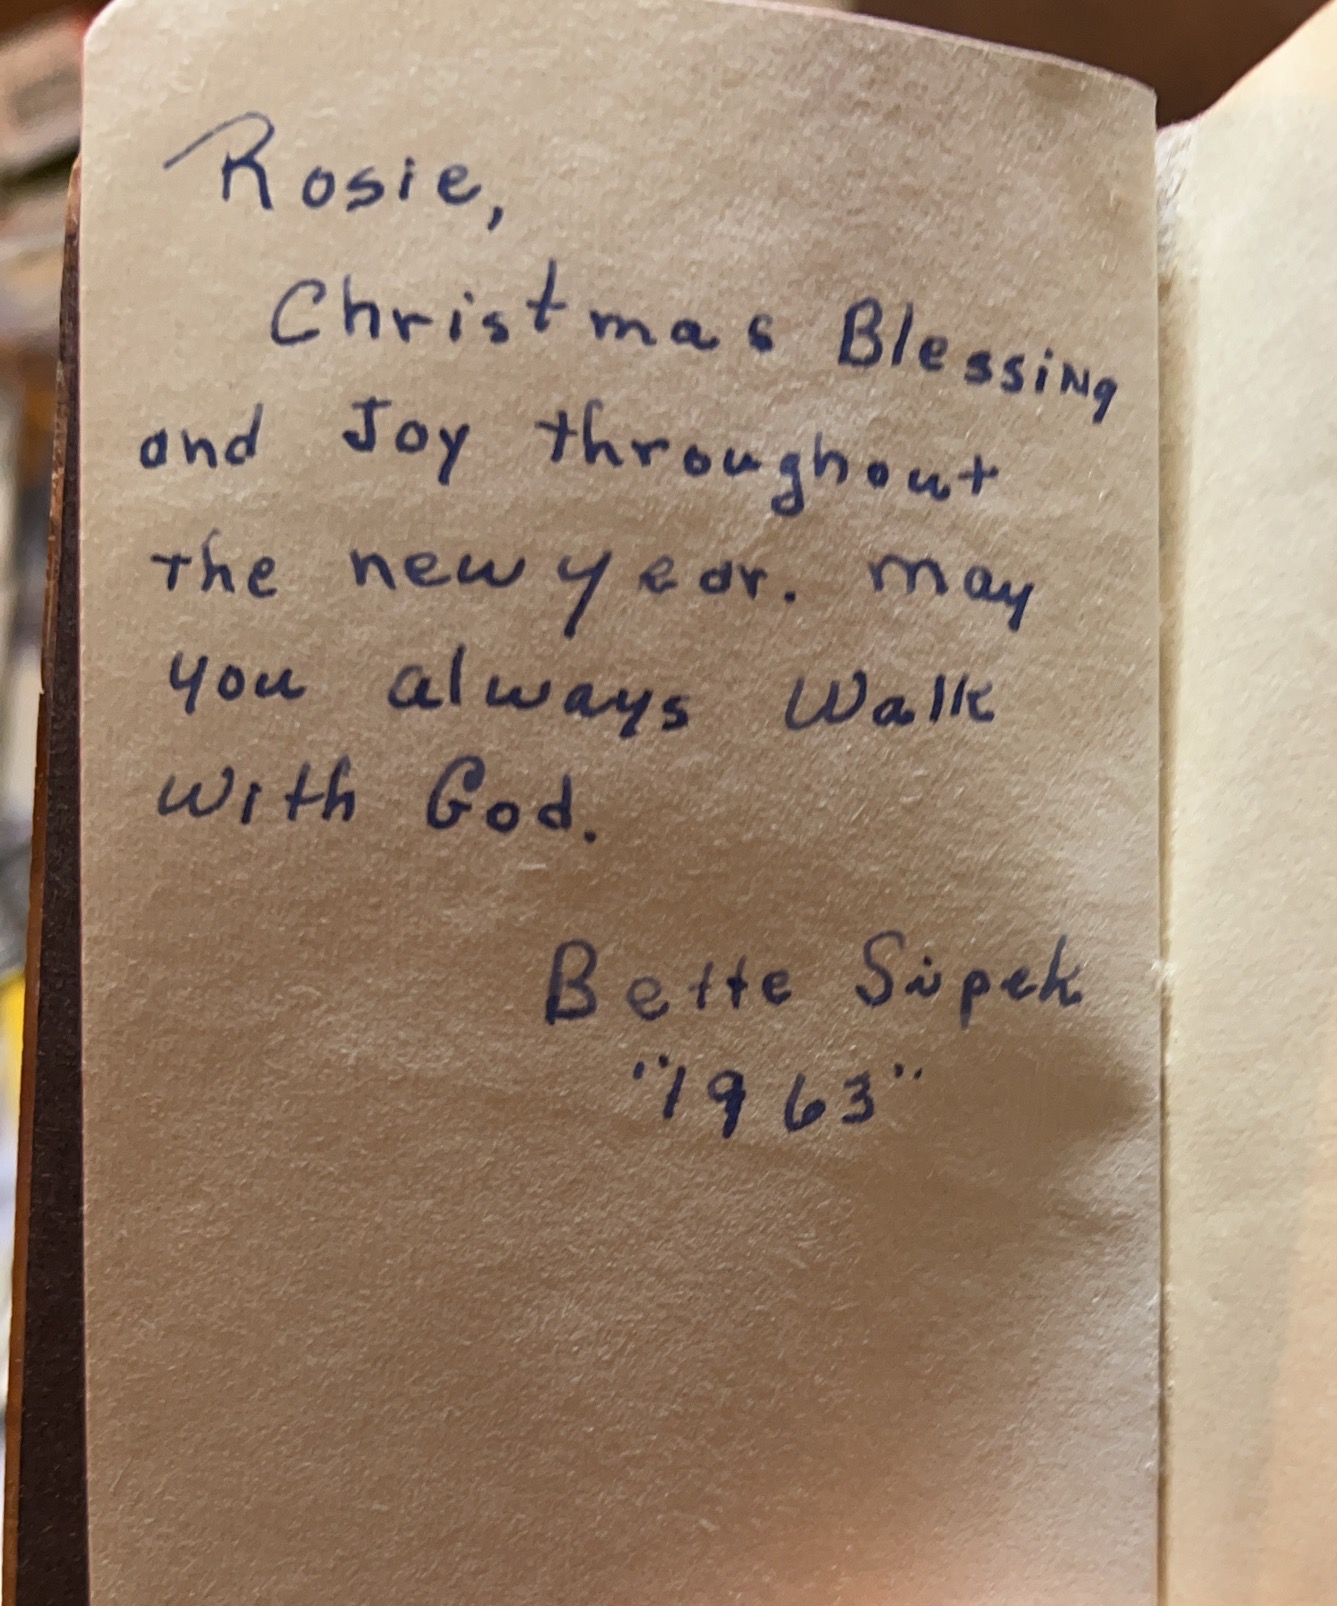 Rosie,
Christmas Blessing
and Joy throughout
the new year. May
you always Walk
with God.
Bette Sipek
"1963"